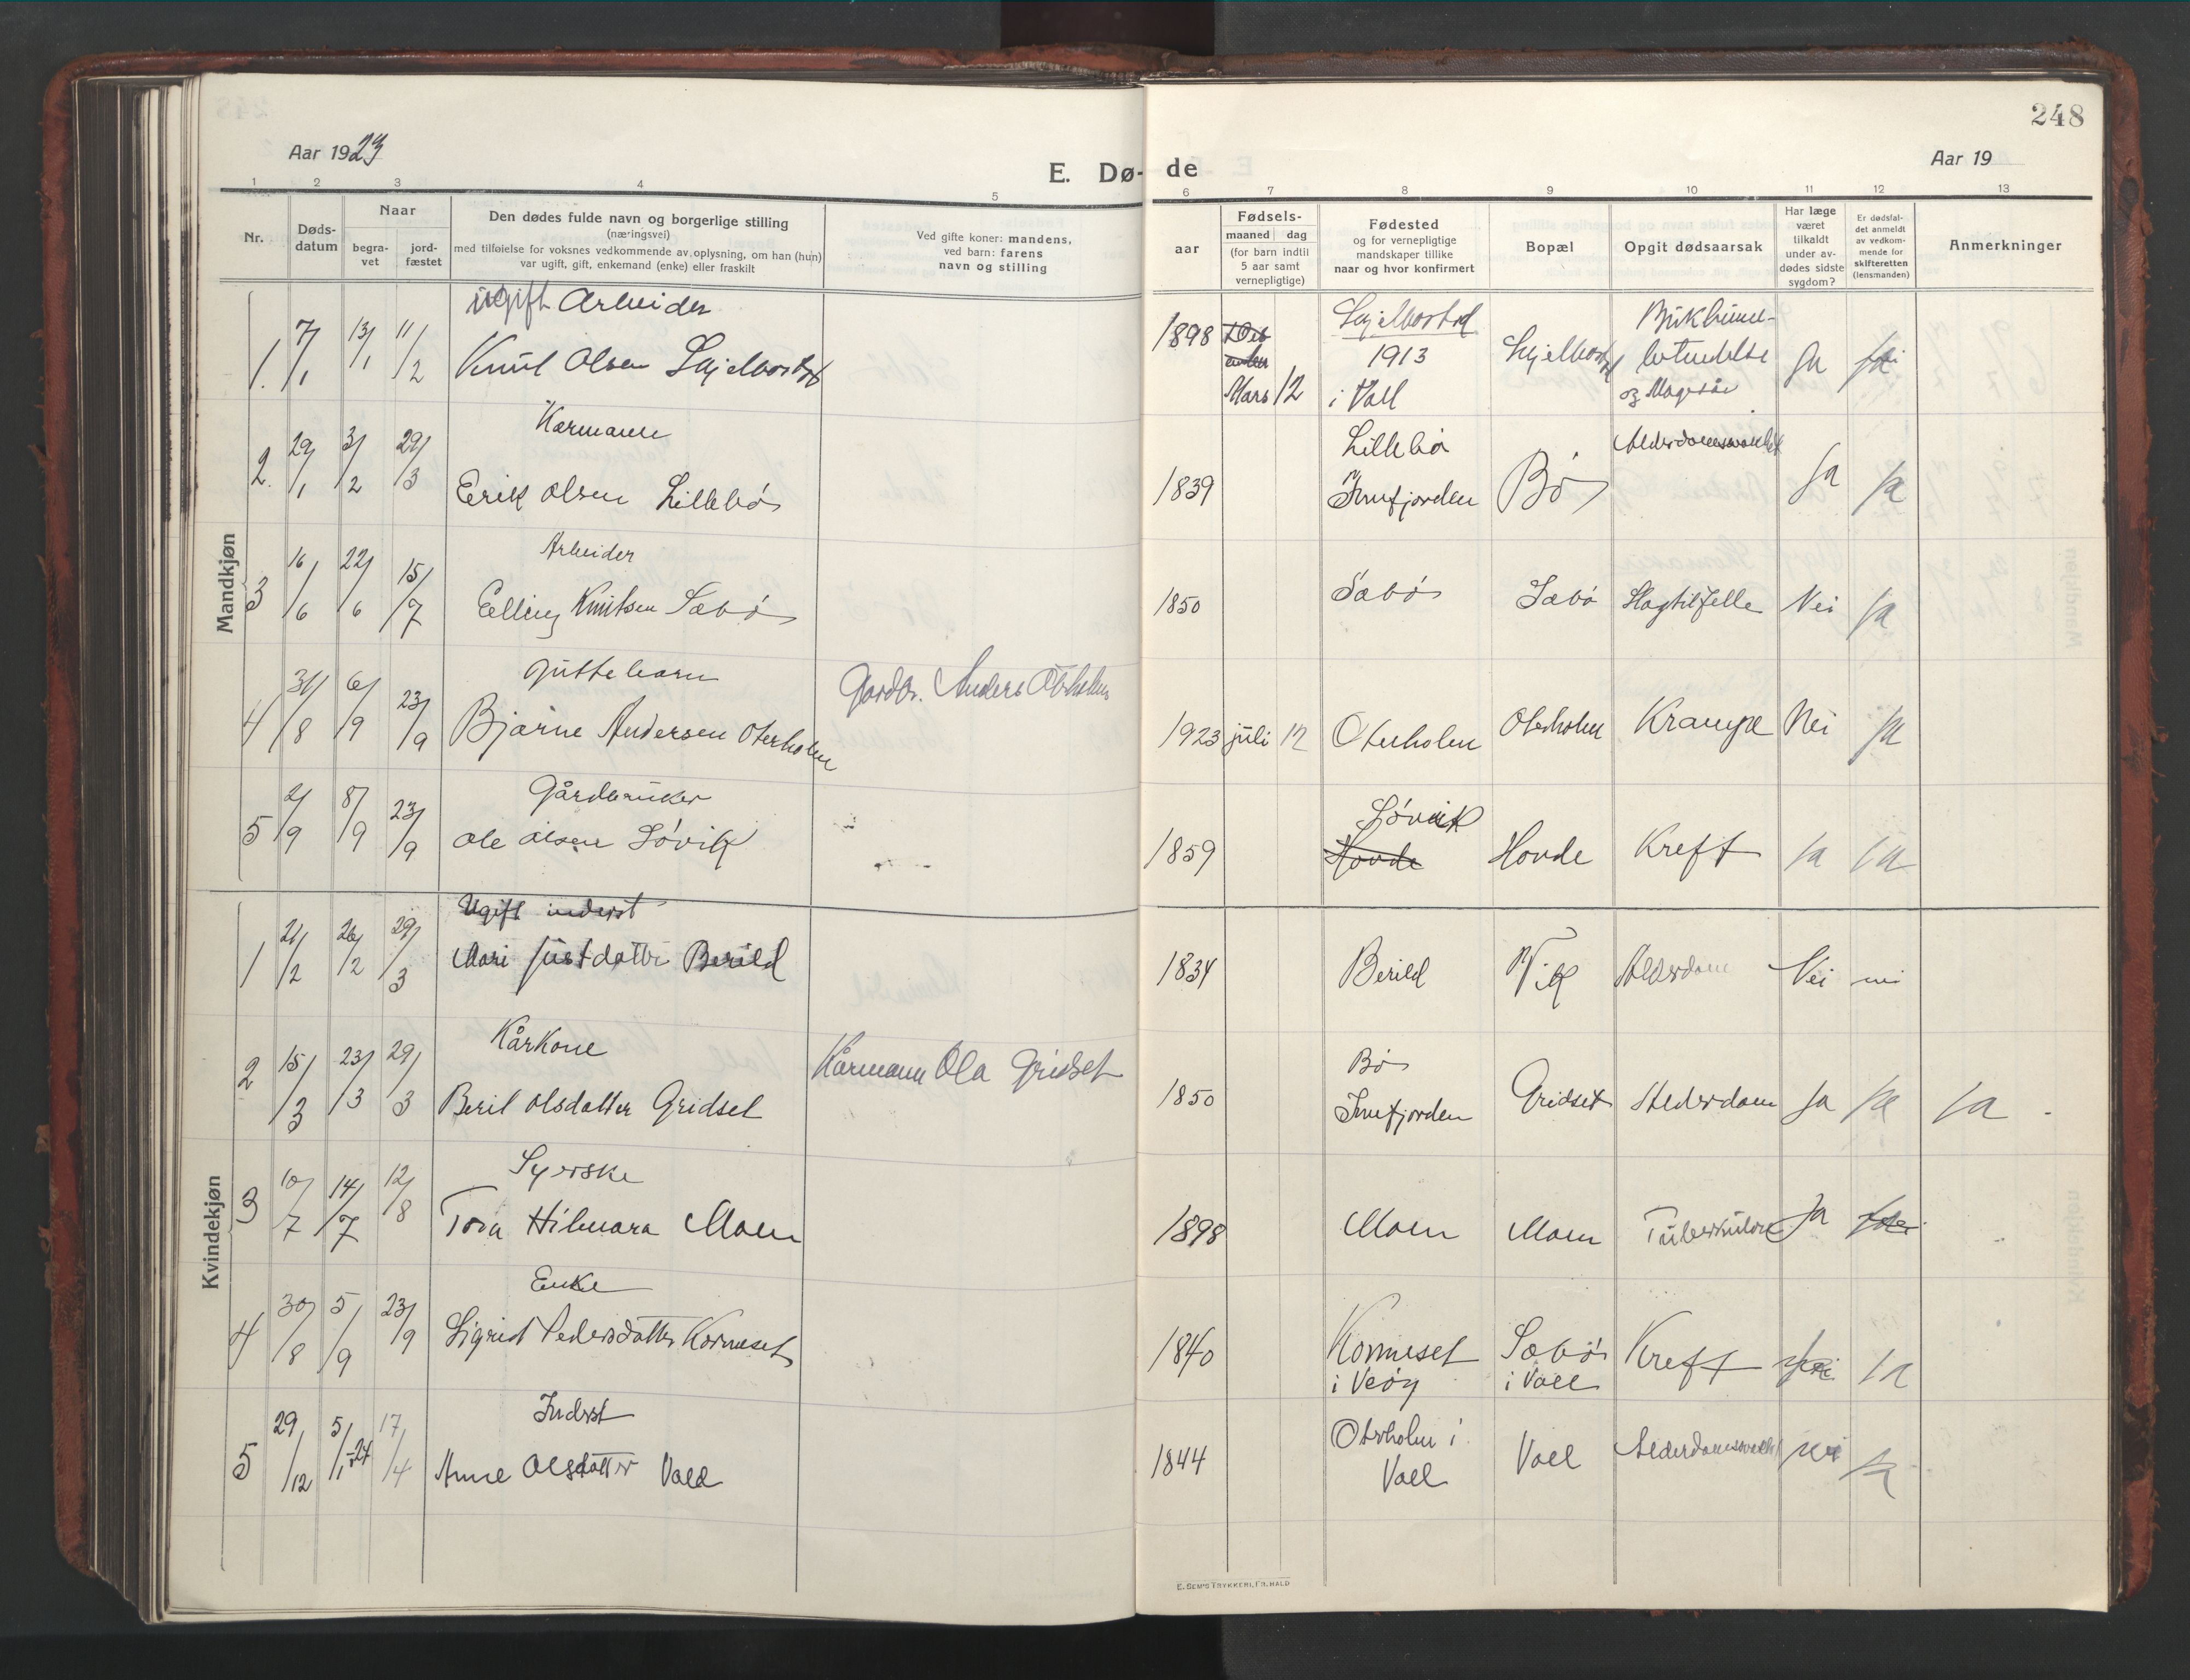 248
Aar 1923
E. Dø- de
Aar 19
1 2 3 4 5 6 7 8 9 10 11 12 13
Nr.
Døds-
datum
Naar
begra-
vet
jord-
fæstet
Den dødes fulde navn og borgerlige stilling
(næringsvei)
med tilføielse for voksnes vedkommende av oplysning, om han (hun)
var ugift, gift, enkemand (enke) eller fraskilt
Ved gifte koner: mandens,
ved barn: farens
navn og stilling
Fødsels-
aar
maaned dag
(for barn indtil
5 aar samt
vernepligtige)
Fødested
og for vernepligtige
mandskaper tillike
naar og hvor konfirmert
Bopæl
Opgit dødsaarsak
Har læge
været
tilkaldt
under av-
dødes sidste
sygdom?
Er dødsfal-
det anmeldt
av vedkom-
mende for
skifteretten
(lensmanden)
Anmerkninger
Mandkjøn
ugift Arbeider
1. 7/1 13/1 11/2 Knut Olsen Skjelbostad 1898 Mars 12 Skjelbostad 1913 i Voll Skjelbostad Bukhinne-
betendelse
og Magesår Ja
Kårmann
2. 29/1 3/2 29/3 Erik Olsen Lillebø 1839 Lillebø
Innfjorden Bø Alderdomssvakhet Ja Ja
Arbeider
3 16/6 22/6 15/7 Elling Knutsen Sæbø 1850 Sæbø Sæbø Slagtilfelle Nei Ja
Guttebarn
4 31/8 6/9 23/9 Bjarne Andersen Oterholm Gardbr. Anders Oterholm 1923 juli 12 Oterholm Oterholm Krampe Nei Ja
Gårdbruker
5 2/9 8/9 23/9 Ole Olsen Løvik 1859 Løvik
Hovde Hovde Kreft Ja Ja
Kvindekjøn
Ugift inderst
1 21/2 26/2 29/3 Mari Justdatter Berild 1834 Berild Vik Alderdom Nei nei
Kårkone
2 15/3 23/3 29/3 Beril Olsdatter Gridset Kårmann Ola Gridset 1850 Bø
Innfjorden Gridset Alderdom Ja Ja Ja
Syerske
3 10/7 14/7 12/8 Tora Hilmara Moen 1898 Moen Moen Tuberkulose Ja
Enke
4 30/8 5/9 23/9 Sigrid Pedersdatter Korneset 1840 Korneset
i Veøy Sæbø
i Voll Kreft Ja
Inderst
5 29/12 5/1-24 17/4 Anne Olsdatter Vold 1844 Oterholm i
Voll Voll Alderdomssvakh nei Ja
E. SEM'S TRYKKERI, FR. HALD